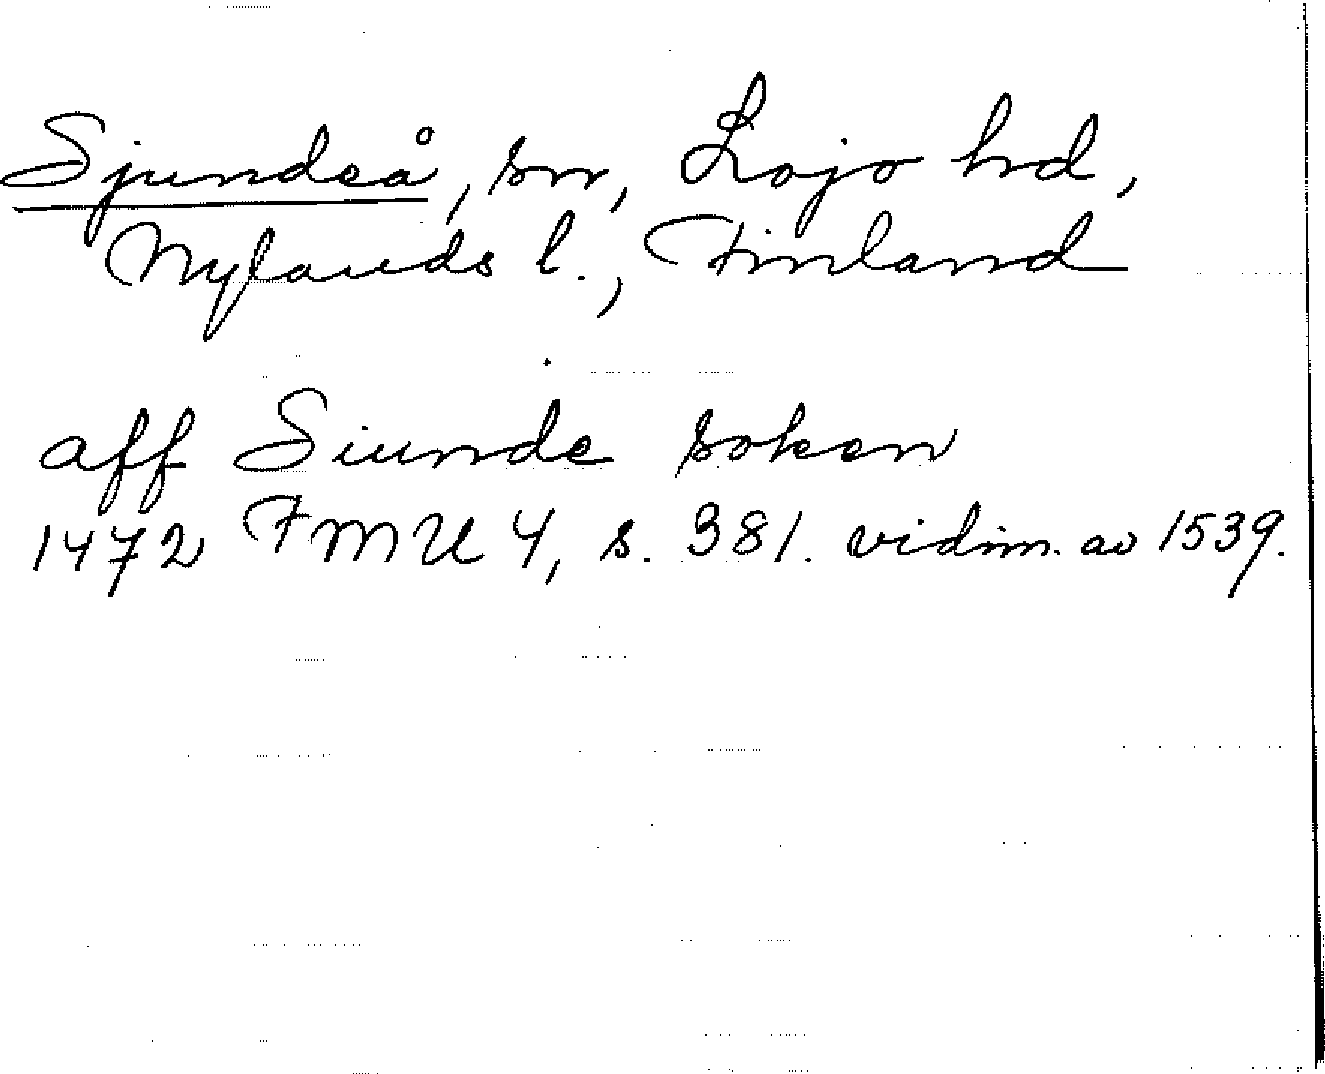 Sjundeå, sn, Lojo hd,
Nylands l., Finland
aff Siunde soken
1472 FMU 4, s. 381. vidim. av 1539.